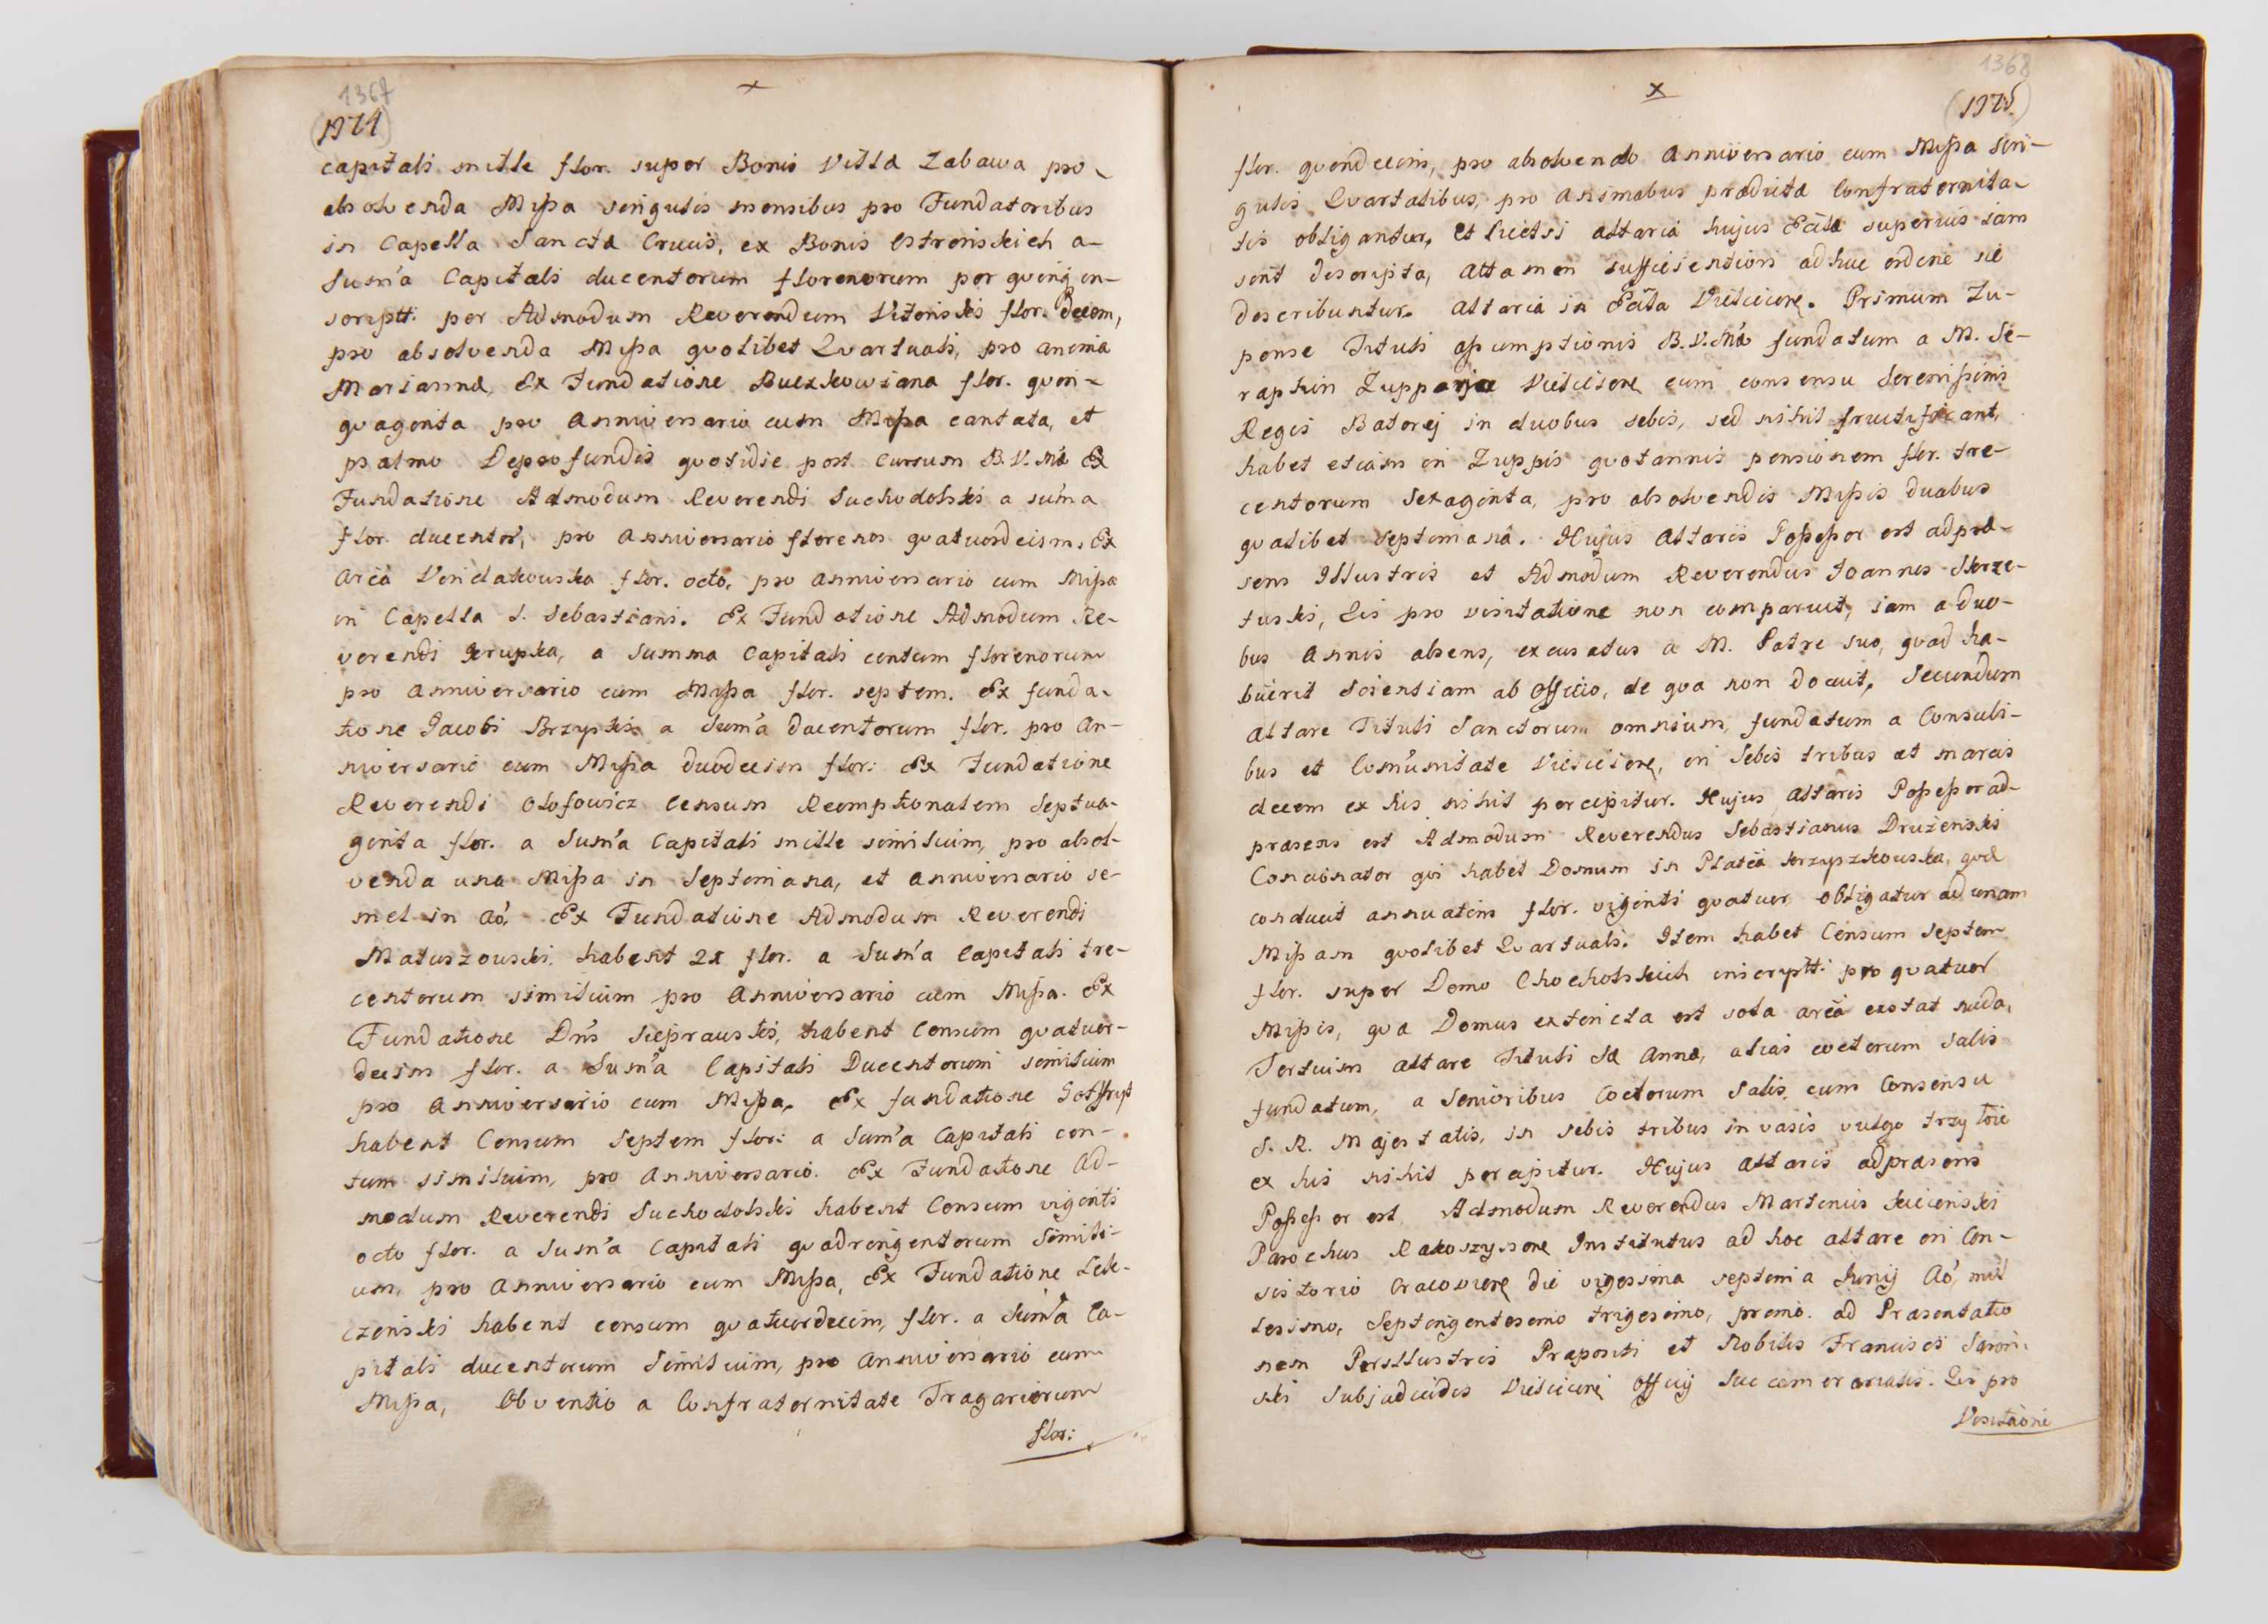 1367
(1974)
capitali mille flor. super Bonis Villæ Zabawa pro
absolvenda Missa singulis mensibus pro Fundatoribus
in Capella Sanctæ Crucis, ex Bonis Ostrowskich a
Sum̃a Capitali ducentorum florenorum per
script: per Admodum Reverendum flor. Decem,
pro absolvenda Missa quolibet Quartuali, pro anima
Mariannæ, Ex Fundatione Buczkowiana flor. quin-
quaginta pro Anniversario cum Missa cantata, et
psalmo Deprofundis quotidie post Cursum B.V.Mæ Ex
Fundatione Admodum Reverendi Suchodolski a sum̃a
flor. ducentor̃, pro Anniversario florenos quatuordecim, Ex
Area flor. octo, pro Anniversario cum Missa
in Capella S. Sebastiani. Ex Fundatione Admodum Re-
verendi a Summa Capitali centum florenorum
pro Anniversario cum Missa flor. septem. Ex funda-
tione Jacobi Brzyski a Sum̃a ducentorum flor. pro An-
niversario cum Missa duodecim flor: Ex Fundatione
Reverendi Olofowicz Censum Reemptionalem Septua-
ginta flor. a Sum̃a Capitali mille similium, pro absol-
venda una Missa in Septimana, et anniversario se-
mel in Aõ. Ex Fundatione Admodum Reverendi
Maturzowski habent 21 flor. a Sum̃a Capitali tre-
centorum similium pro Anniversario cum Missa. Ex
Fundatione Dñi Sieprawski, habent Censum quatuor-
decim flor. a Sum̃a Capitali Ducentorum similium
pro Anniversario cum Missa, Ex fundatione
habent Censum Septem flor: a Sum̃a Capitali cen-
tum similium, pro Anniversario. Ex Fundatione Ad-
modum Reverendi Suchodolski habent Censum viginti
octo flor. a Sum̃a Capitali quadringentorum Simili-
um, pro Anniversario cum Missa, Ex Fundatione Lek-
czenski habent censum quatuordecim, flor. a Sum̃a Ca-
pitali ducentorum Similium, pro Anniversario cum
Missa, Obventio a Confraternitate Tragariorum
flor:
1368
(1975)
flor. quindecim, pro absolvendo Anniversario cum Missa sin-
gulis Quartalibus, pro Animabus prædictæ Confraternita-
tis obligantur, Et licet si altaria hujus Ecclæ superius iam
sint descripta, attamen sufficientiori adhuc ordine sic
describuntur. Altaria in Eccla Vieliciene. Primum Zu-
pense Tituli assumptionis B.V.Mæ fundatum a M. Se-
raphin Vieliciene cum consensu Serenissimi
Regis Batorej in duobus sebis, sed nihil fructificant,
habet etiam in Zuppis quotannis pensionem flor. tre-
centorum sexaginta, pro absolvendis Missis duabus
qualibet septimana. Hujus Altaris Possessor est ad præ-
sens Illustris et Admodum Reverendus Joannes Skrze-
tuski, Qis pro visitatione non comparuit, iam a duo-
bus Annis absens, excusatus a M. Patre suo, quod ha-
buerit scientiam ab Officio, de qua non docuit, Secundum
Altare Tituli Sanctorum omnium, fundatum a Consuli-
bus et Com̃unitate Vieliciene, in Sebis tribus et marcis
decem ex his nihil percipitur. Hujus Altaris Possessor ad-
præsens est Admodum Reverendus Sebastianus Drużenski
Concionator qui habet Domum in Platea Krzyszkowska, quæ
conducit annuatim flor. viginti quatuor obligatur ad unam
Missam quolibet Quartuali. Item habet Censum Septem
flor. super Domo Chocholskich inscript: pro quatuor
Missis, quæ Domus extincta est sola area exstat nuda,
Tertium altare Tituli Sæ Annæ, alias coctorum Salis
fundatum, a Senioribus Coctorum Salis cum Consensu
S. R. Majestatis, in sebis tribus in vasis vulgo trzy
ex his nihil percipitur. Hujus Altaris adpræsens
Possessor est Admodum Reverendus Martinus
Parochus Institutus ad hoc altare in Con-
sistorio Cracoviene die vigesima septima Junij Aõ, mil
lesimo, Septingentesimo trigesimo, primo. ad Præsentatio
nem Perillustris Præpositi et Nobilis Francisci
ski Subjudicidis Vieliciene Officij Succamerarialis. Qis pro
Visitatione